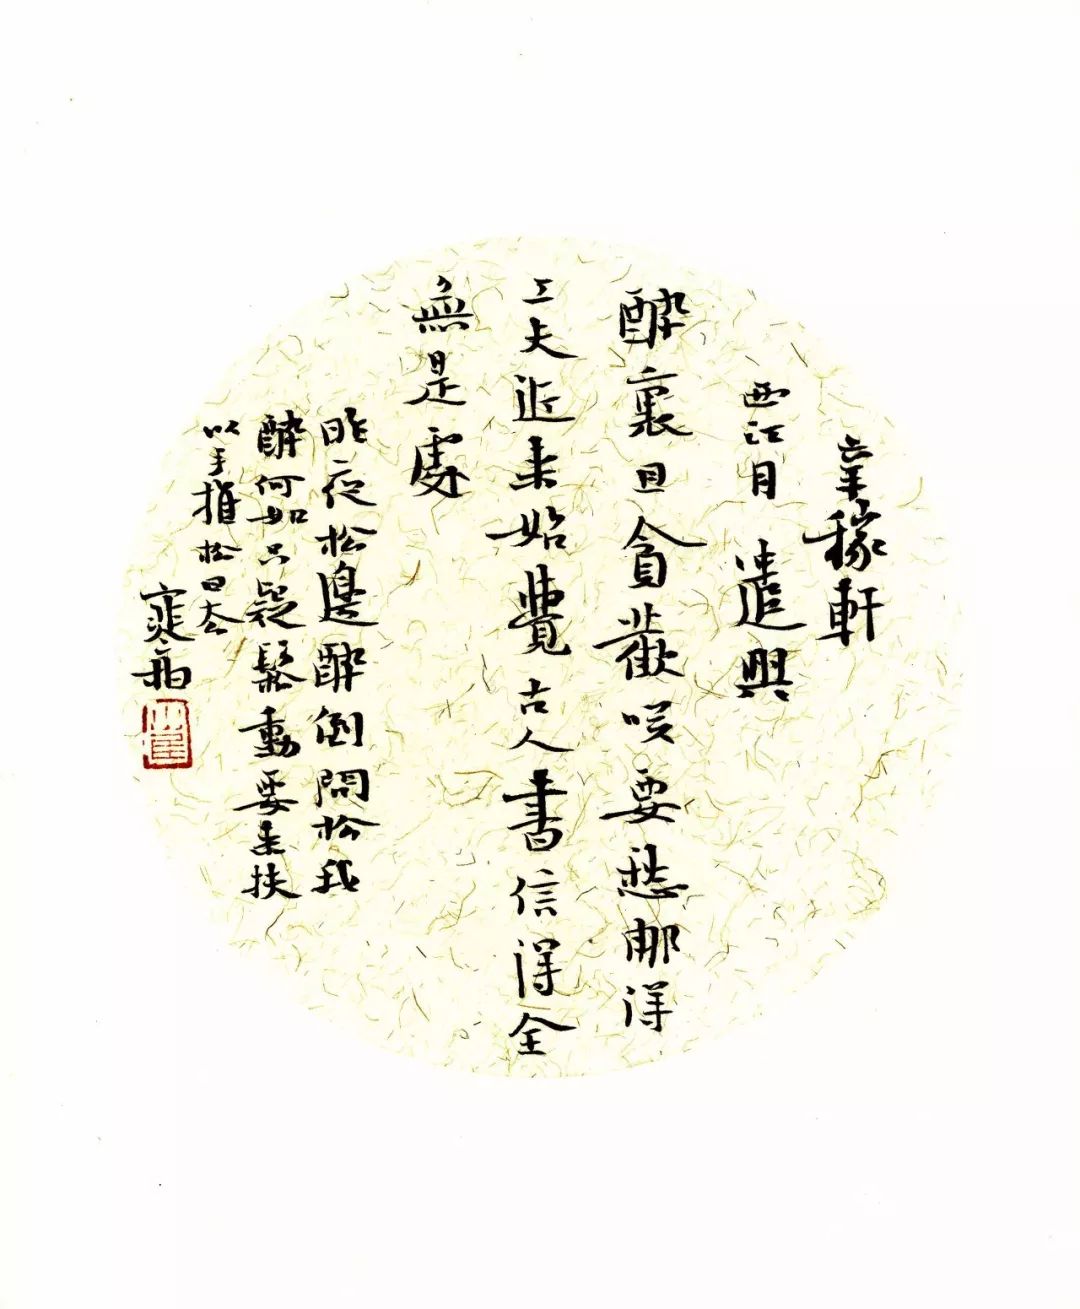 辛稼軒
西江月 遣興
醉裏且貪歡咲要愁那得
工夫近来始覺古人書信得全
無是處
昨夜松邊醉倒問松我
醉何如只疑鬆動要来扶
以手推松曰去